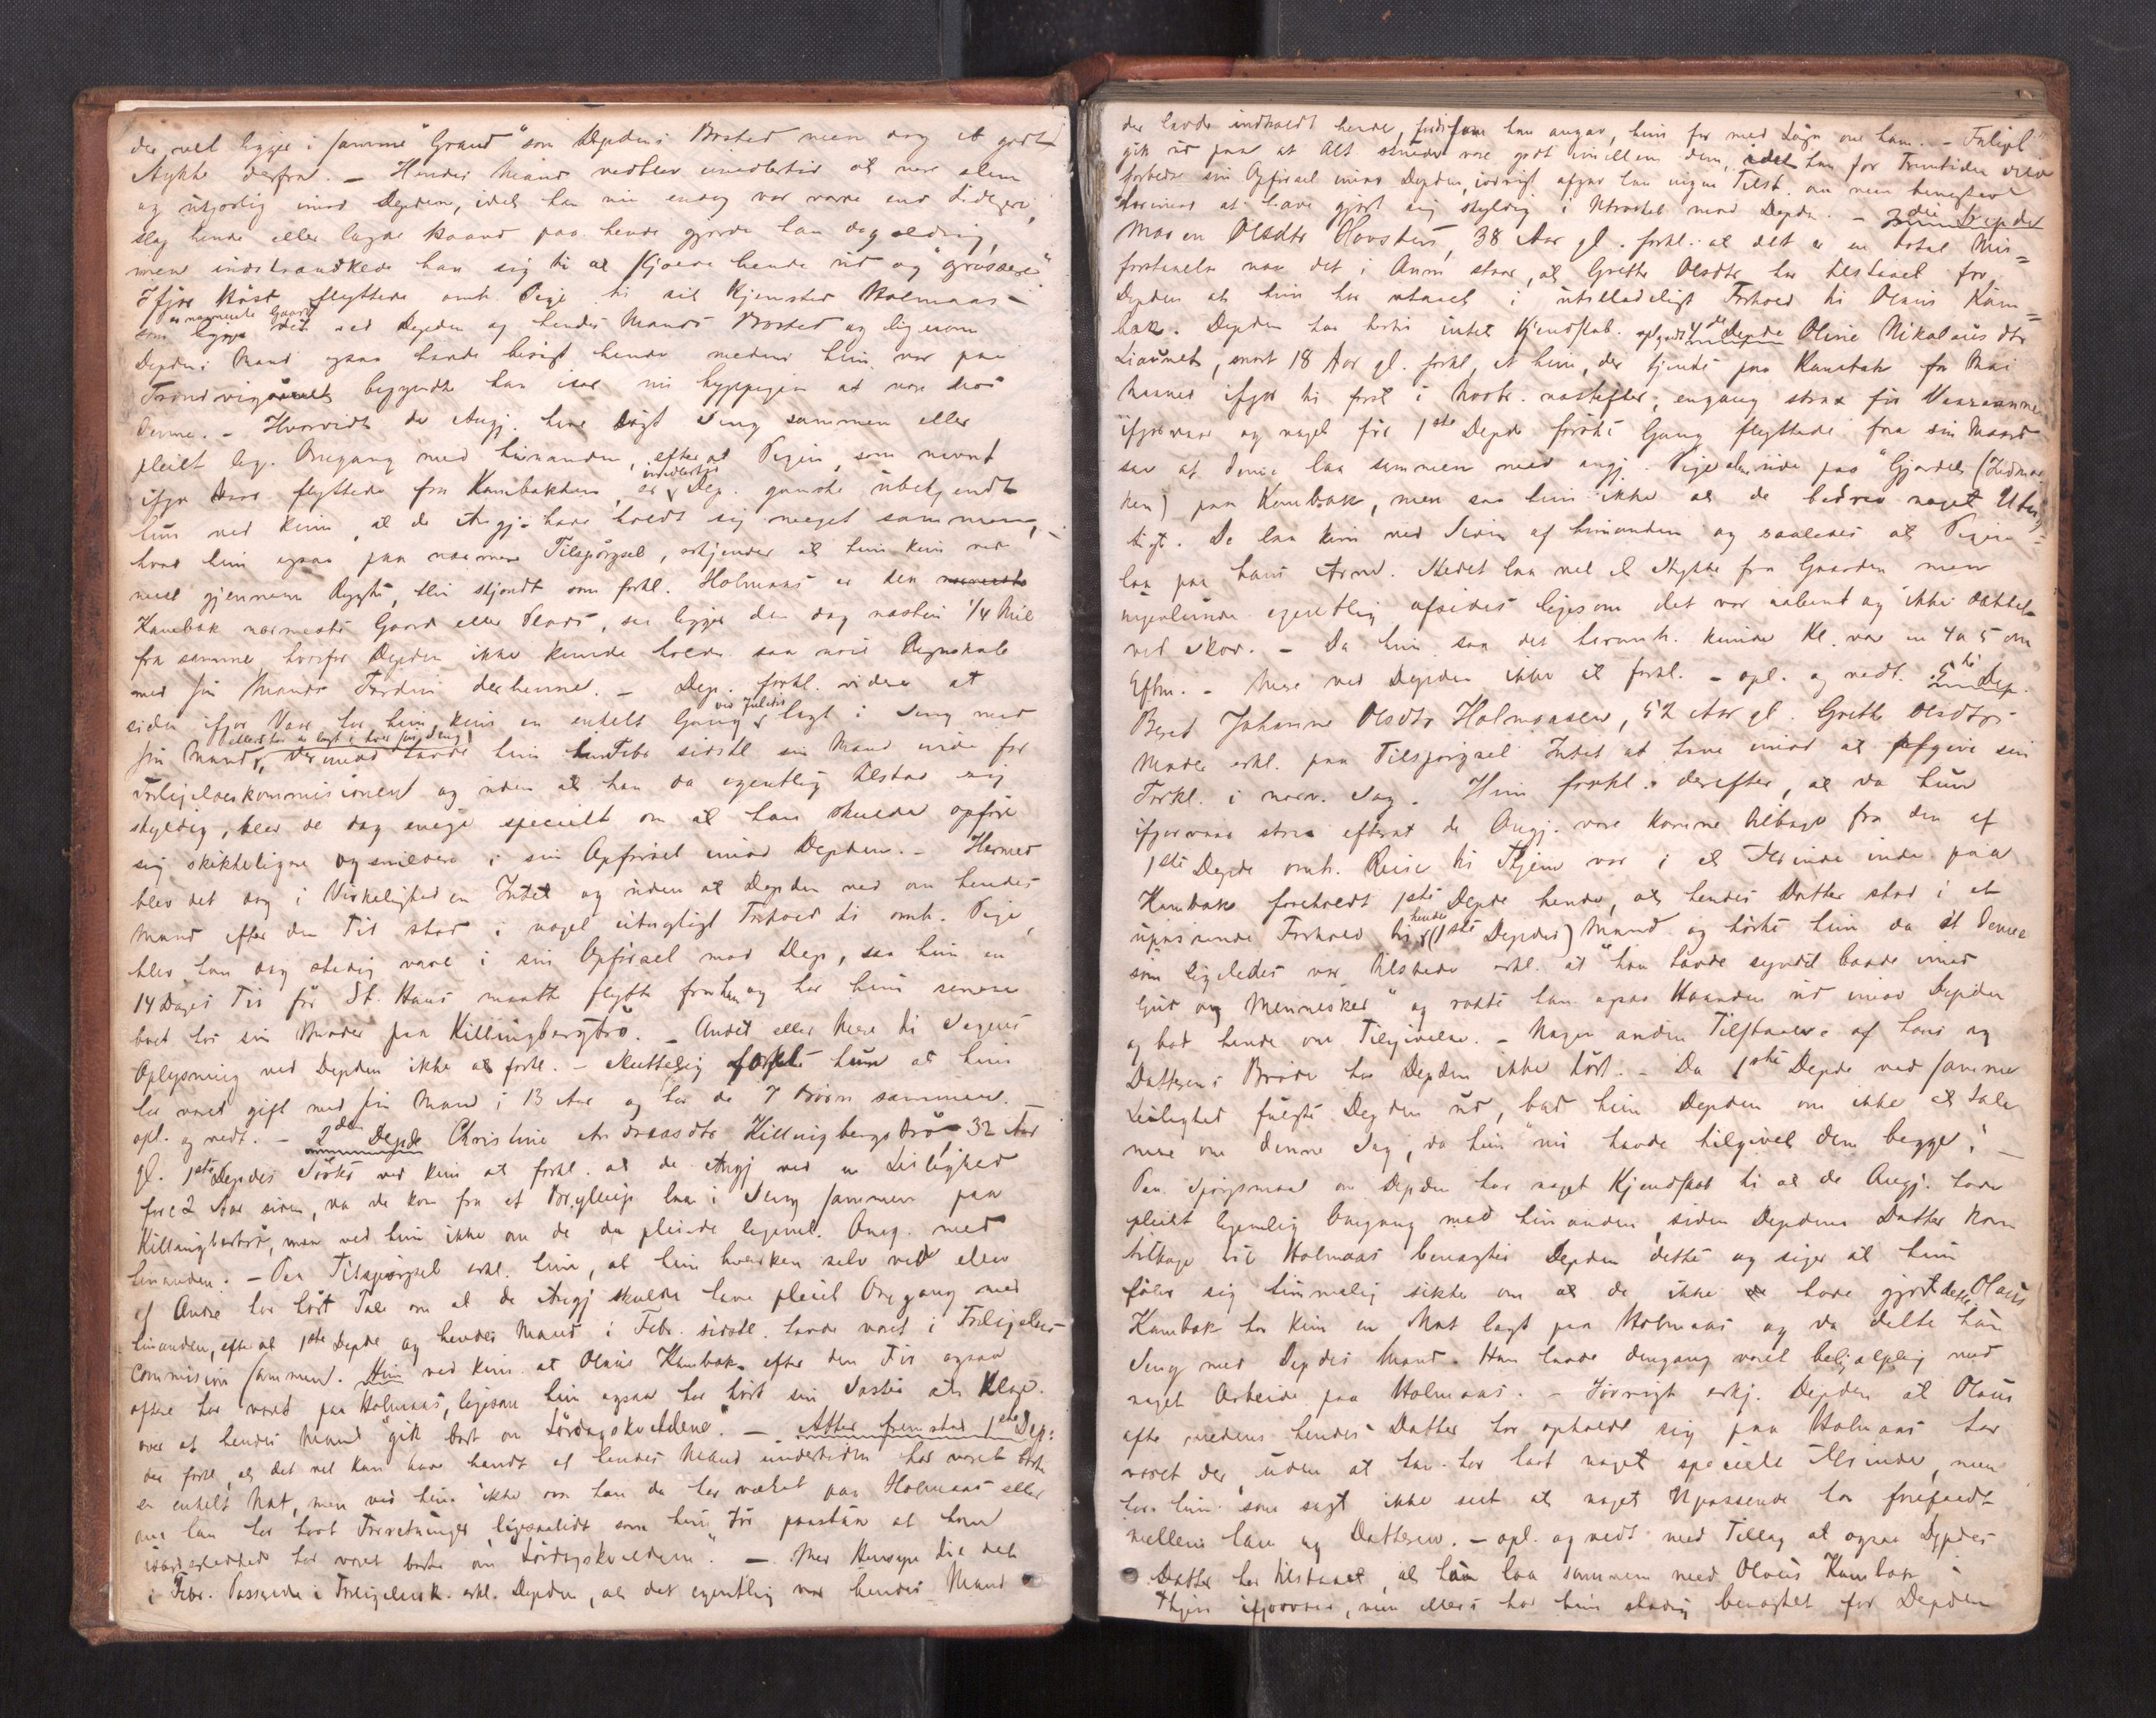 der vel ligger i samme "Grand" som Depdens Bosted men dog et godt
Stykke derfra. – Hendes Mand vedblev imidlertid at være slem
og uskjørlig imod Depden, idet han nu endog var værre end tidligere,
slog hende eller lagde Haand paa hende gjorde han dog aldrig,
men indskrænkede han sig til at skjænde hende ud og "grossere"
Ifjor Høst flyttede omh. Pige til sit Hjemsted Holmaas –
som er nærmeste Gaard ved Depden og hendes Mands Bosted og ligesom
Depdens Mand ogsaa havde besøgt hende medens hun var paa
begyndte han især nu hyppigen at være hos
Denne. – Hvorvidt de Angj. have ligt i Seng sammen eller
pleiet leg. Omgang med hinanden, efterat Pigen, som nævnt
ifjor Vaar flyttede fra Kambakken, er imidlertid Dep. ganske ubekjendt
hun ved kun, at de Angj. have holdt sig meget sammen,
hvad hun ogsaa paa nærmere Tilspørgsel, erkjender at hun kun ved
mest gjennem Rygte, thi skjøndt som forkl. Holmaas er den
Kambak nærmeste Gaard eller Plads, saa ligger den dog næsten 1/4 Mil
fra samme, hvorfor Depden ikke kunde holde saa nøie Regnskab
med sin Mands Færden derhenne. – Dep. forkl. videre at
siden ifjor Vaar har hun kun en enkelt Gang ved Juletid lagt i Seng med
sin Mand, ellers har de lagt i hver sin Seng, havde hun Febr. sidstl. sin Mand inde for
Forligelseskommisionen og uden at han da egentlig tilstod sig
skyldig, blev de dog enige specielt om at han skulde opføre
sig skikkeligere og snildere i sin Opførsel imod Depden. – Hermed
blev det dog i Virkeligheden Intet og uden at Depden ved om hendes
Mand efter den Tid stod i noget utugtigt Forhold til omh. Pige,
blev han dog stedig værre i sin Opførsel mod Dep., saa hun en
14 Dages Tid før St. Hans maatte flytte fra ham og har hun senere
boet hos sin Moder paa Killingbergtrø. – Andet eller Mere til Sagens
Oplysning ved Depden ikke at forkl. – Sluttelig forkl. hun at hun
har været gift med sin Mand i 13 Aar og har de 7 Børn sammen. –
opl. og vedt. – 2den Depde Christine Andreasdtr Killingbergtrø, 32 Aar
gl. 1ste Depdes Søster ved kun at forkl. at de Angj. ved en Leilighed
for c 2 Aar siden, da de kom fra et Bryllup laa i Seng sammen paa
Killingbertrø, men ved hun ikke om de da pleiede legeml. Omg. med
hinanden. – Paa Tilspørgsel erkl. hun, at hun hverken selv ved eller
af Andre har hørt Tale om at de Angj. skulde have pleiet Omgang med
hinanden, efter at 1ste Depde og hendes Mand i Febr. sidstl. havde været i Forligelses-
Commision sammen. Hun ved kun at Olaus Kambak efter den Tid ogsaa
oftere har været paa Holmaas, ligesom hun ogsaa har hørt sin Søster at klage
over at hendes Mand "gik bort om Lørdagskveldene." – Atter fremstod 1ste Dep:
der forkl. at det vel kan have hændt at hendes Mand undertiden har været borte
en enkelt Nat, men ved hun ikke om han da har været paa Holmaas eller
om han har havt Forretninger, ligesaalidt som hun tør paastaa at han
har været borte om "Lørdagskveldene". – Med Hensyn til det
i Febr. Passerede i Forligelsesk. erkl. Depden, at det egentlig var hendes Mand
der havde indkaldt hende, fordi som han angav, hun før med Løgn om ham. – Forliget
gik ud paa at Alt skulde være godt imellem dem, idet han for Fremtiden vilde
forbedre sin Opførsel imod Depden, iøvrigt afgav han ingen Tilst. om men benegtede
derimod at have gjort sig skyldig i Utroskab mod Depden. – 3die Depde
Maren Olsdtr Hovsten, 38 Aar gl. forkl. at det er en total Mis=
forstaaelse naar det i Anm. staar, at Grethe Olsdtr har tilstaaet for
Depden at hun har staaet i utilladeligt Forhold til Olaus Kam=
bak. Depden har hertil intet Kjendskab. opl. vedt. 4de Depde Oline Nikolausdtr
Liaunet, snart 18 Aar gl. forkl. at hun, der tjente paa Kambak fra Mai
Maaned ifjor til først i Novbr. næstefter, engang strax før Vaaraannen
ifjorvaar og noget før 1ste Depde første Gang flyttede fra sin Mand
saa at Denne laa sammen med angj. Pige ude paa "Gjærdet" (
ken) paa Kambak, men saa hun ikke at de bedrev noget Utug=
tigt. De laa kun ved Siden af hinanden og saaledes at Pigen
laa paa hans Arm. Stedet laa vel et Stykke fra Gaarden men
ingenlunde egentlig afsides ligesom det var aabent og ikke dækket
ved Skov. – Da hun saa det heromh. kunde Kl. være en 4 a 5 om
Eftm. – Mere ved Depden ikke at forkl. – opl. og vedt. 5te Dep.
Beret Johanne Olsdtr Holmaasen, 52 Aar gl. Grethe Olsdtrs
Moder erkl. paa Tilspørgsel Intet at have imod at afgive sin
Forkl. i nærv. Sag. Hun forkl. derefter, at da hun
ifjorvaar strax efterat de Angj. vare komne tilbage fra den af
1ste Depde omh. Reise til Thjem var i et Ærinde inde paa
Kambak foreholdt 1ste Depde hende, at hendes Datter stod i et
upassende Forhold til hendes (1ste Depdes) Mand og hørte hun da at Denne
som ligeledes var tilstede erkl. at "han havde syndet baade imod
Gud og Mennesker" og rakte han ogsaa Haanden ud imod Depden
og bad hende om Tilgivelse. – Nogen anden Tilstaaelse af hans og
Datterens Brøde har Depden ikke hørt. – Da 1ste Depde ved samme
Leilighed fulgte Depden ud, bad hun Depden om ikke at tale
mere om denne Sag, da hun "nu havde tilgivet dem begge". –
Paa Spørgsmaal om Depden har noget Kjendskab til at de Angj. have
pleiet legemlig Omgang med hinanden siden Depdens Datter kom
tilbage til Holmaas benegter Depden dette og siger at hun
føler sig temmelig sikker om at de ikke have gjort dette. Olaus
Kambak har kun en Nat lagt paa Holmaas og da delte han
Seng med Depdes Mand. Han havde dengang været behjælpelig med
noget Arbeide paa Holmaas. – Iøvrigt erkj. Depden at Olaus
ofte medens hendes Datter har opholdt sig paa Holmaas har
været der uden at han har havt noget specielt Ærinde, men
har hun som sagt ikke seet at noget Upassende har forefaldt
mellem ham og Datteren. – opl. og vedt. med Tillæg at ogsaa Depdes
Datter har tilstaaet, at hun laa sammen med Olaus Kambak i
Thjem ifjorvaar, men ellers har hun stadig benegtet for Depden